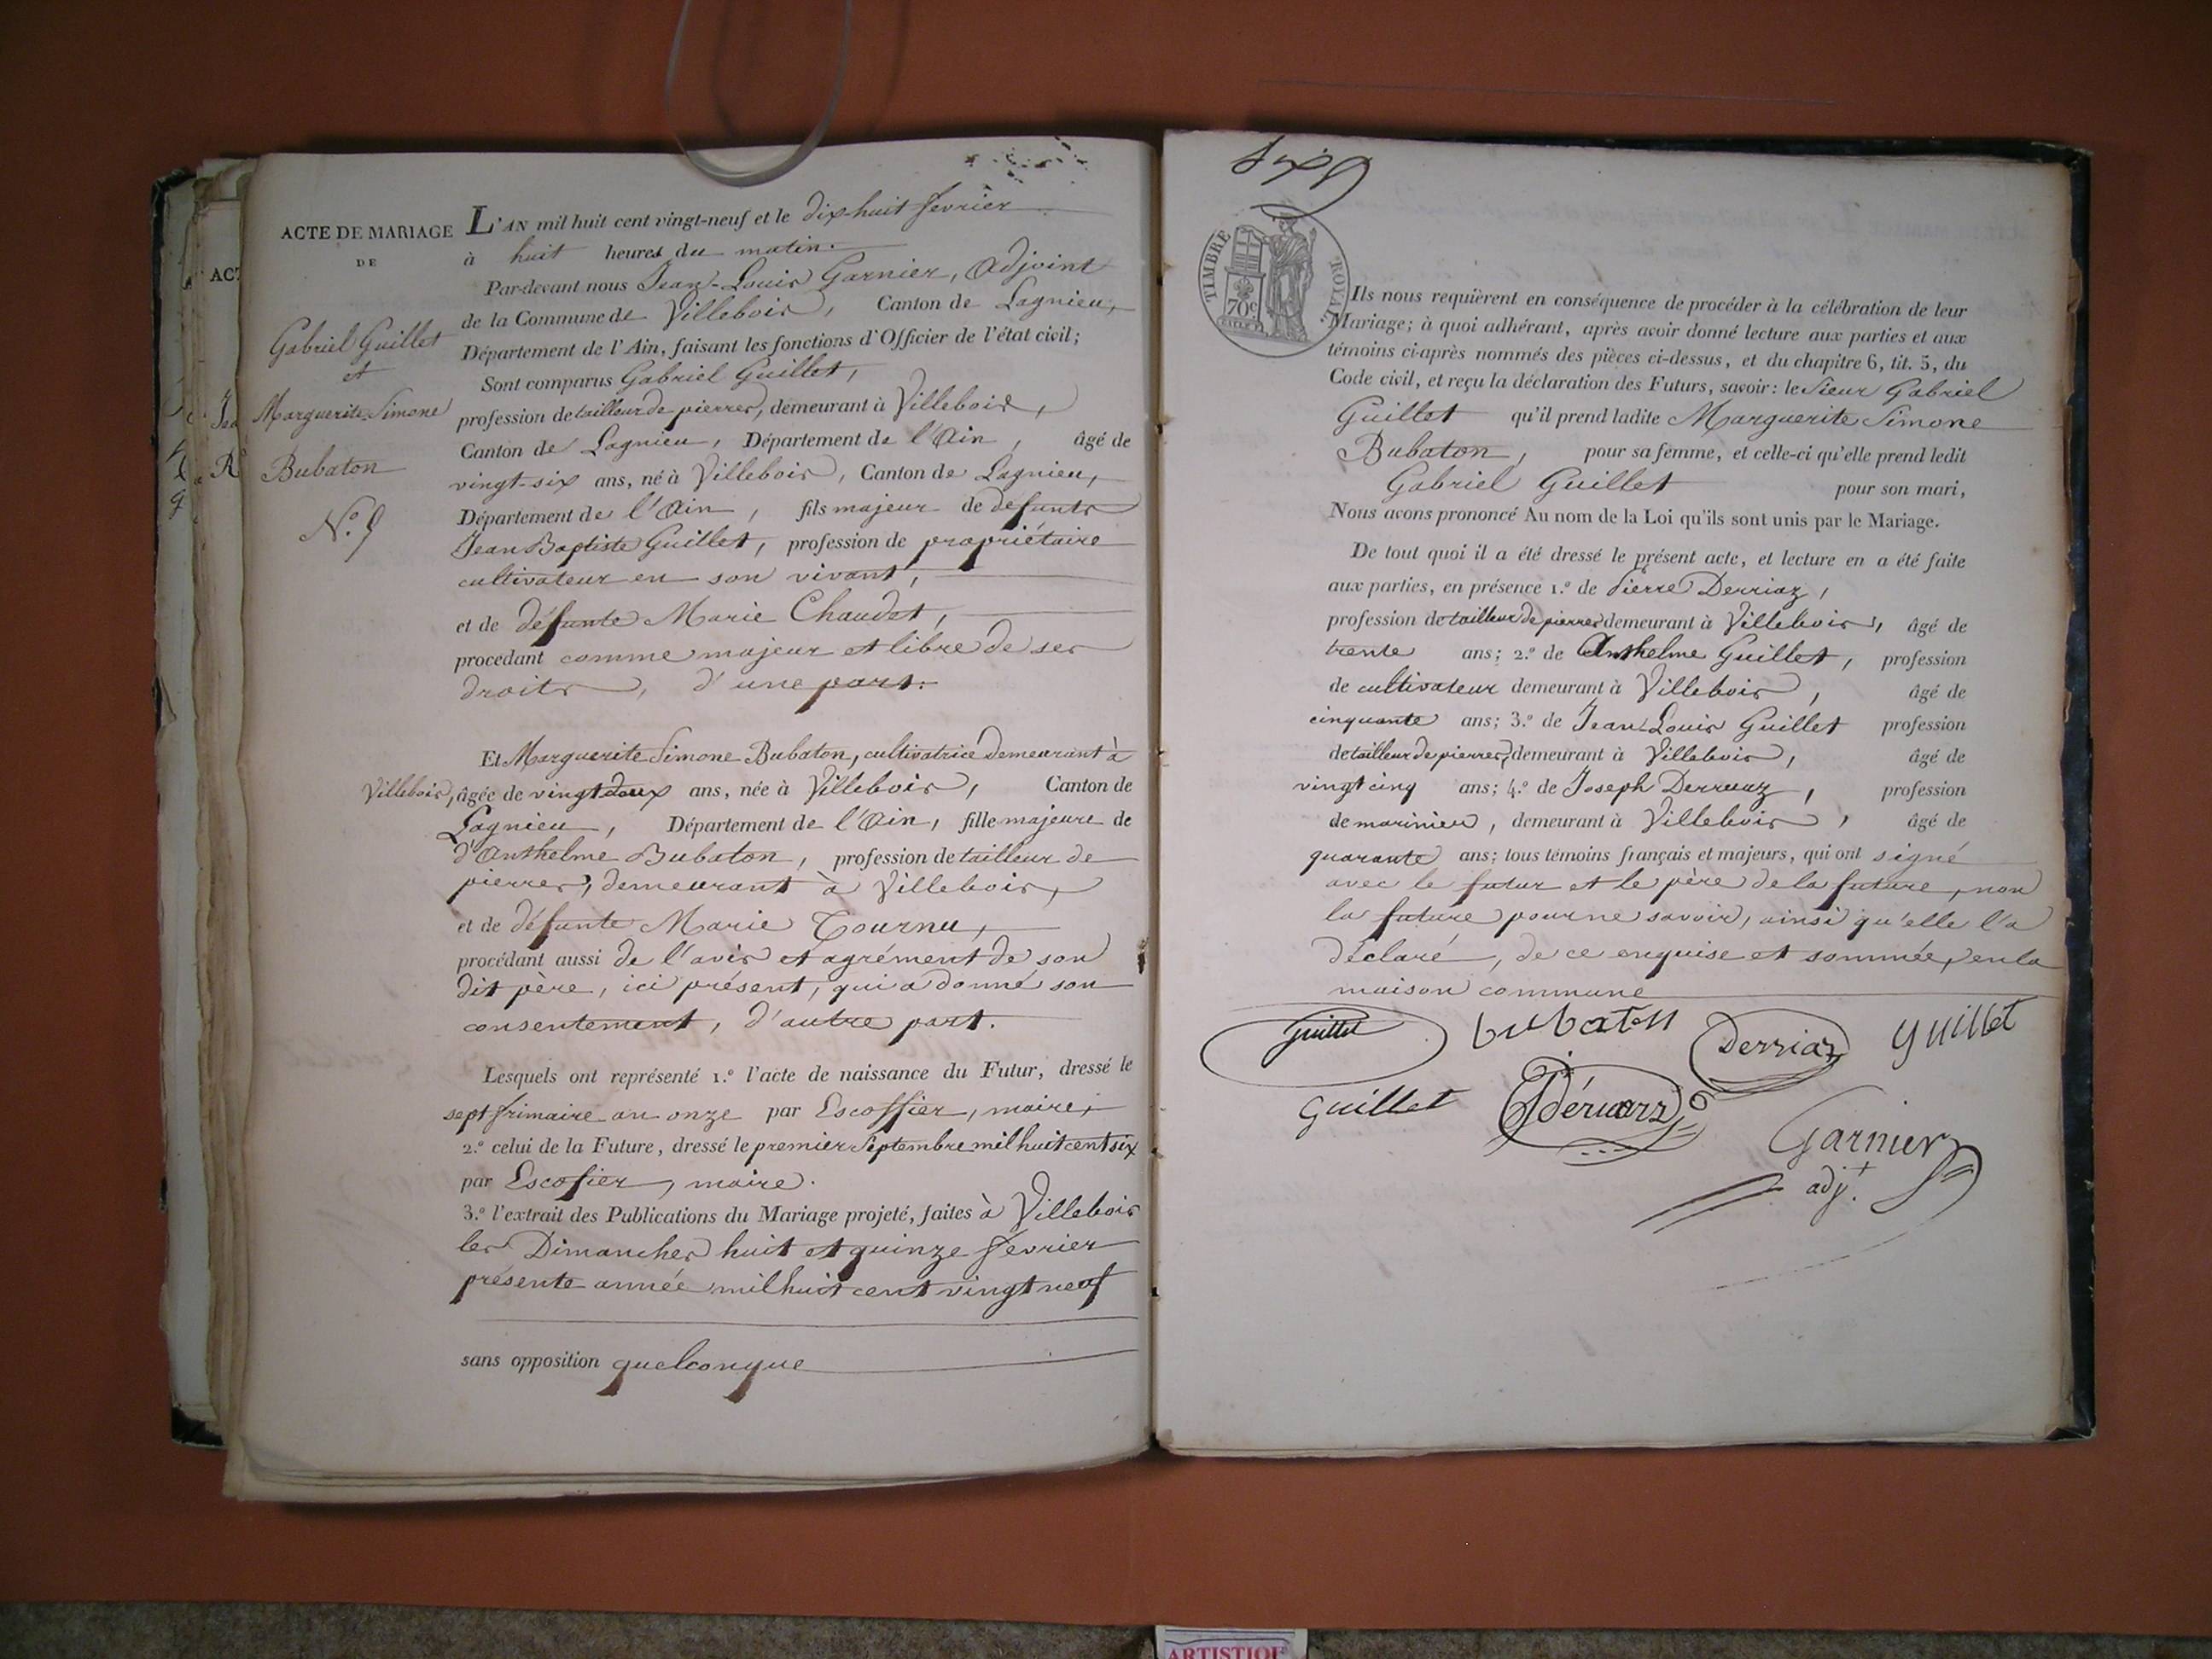 ACTE DE MARIAGE
DE
Gabriel Guillet
et
Marguerite Simone
Bubaton
N.º 9
L'AN mil huit cent vingt-neuf et le dix-huit février
à huit heures du matin.
Par-devant nous Jean-Louis Garnier, Adjoint
de la Commune de Villebois, Canton de Lagnieu,
Département de l'Ain, faisant les fonctions d'Officier de l'état civil;
Sont comparus Gabriel Guillet,
profession de tailleur de pierres, demeurant à Villebois,
Canton de Lagnieu, Département de l'Ain, âgé de
vingt-six ans, né à Villebois, Canton de Lagnieu,
Département de l'Ain, fils majeur de defunts
Jean Baptiste Guillet, profession de propriétaire
cultivateur en son vivant,
et de défunte Marie Chaudet,
procédant comme majeur et libre de ses
droits, d'une part.
Et Marguerite Simone Bubaton, cultivatrice demeurant à
Villebois, âgée de vingt deux ans, née à Villebois, Canton de
Lagnieu, Département de l'Ain, fille majeure de
d'Anthelme Bubaton, profession de tailleur de
pierres, demeurant à Villebois,
et de défunte Marie Tournu,
procédant aussi de l'avis et agrément de son
dit père, ici présent, qui a donné son
consentement, d'autre part.
Lesquels ont représenté 1.º l'acte de naissance du Futur, dressé le
sept frimaire an onze par Escoffier, maire,
2.º celui de la Future, dressé le premier Septembre mil huit cent six
par Escofier, maire.
3.º l'extrait des Publications du Mariage projeté, faites à Villebois
les Dimanches huit et quinze février
présente année mil huit cent vingt neuf
sans opposition quelconque
TIMBRE ROYAL
70 c
Ils nous requièrent en conséquence de procéder à la célébration de leur
Mariage; à quoi adhérant, après avoir donné lecture aux parties et aux
témoins ci-après nommés des pièces ci-dessus, et du chapitre 6, tit. 5, du
Code civil, et reçu la déclaration des Futurs, savoir: le Sieur Gabriel
Guillet qu'il prend ladite Marguerite Simone
Bubaton, pour sa femme, et celle-ci qu'elle prend ledit
Gabriel Guillet pour son mari,
Nous avons prononcé Au nom de la Loi qu'ils sont unis par le Mariage.
De tout quoi il a été dressé le présent acte, et lecture en a été faite
aux parties, en présence 1.º de Pierre Derriaz,
profession de tailleur de pierres demeurant à Villebois, âgé de
trente ans; 2.º de Anthelme Guillet, profession
de cultivateur demeurant à Villebois, âgé de
cinquante ans; 3.º de Jean Louis Guillet profession
de tailleur de pierres, demeurant à Villebois, âgé de
vingt cinq ans; 4.º de Joseph Derruaz, profession
de marinier, demeurant à Villebois, âgé de
quarante ans; tous témoins français et majeurs, qui ont signé
avec le futur et le père de la future, non
la future pour ne savoir, ainsi qu'elle l'a
déclaré, de ce enquise et sommée, en la
maison commune
Guillet bubaton Derriaz guillet
guillet Garnier
adj.t
ARTISTIQUE